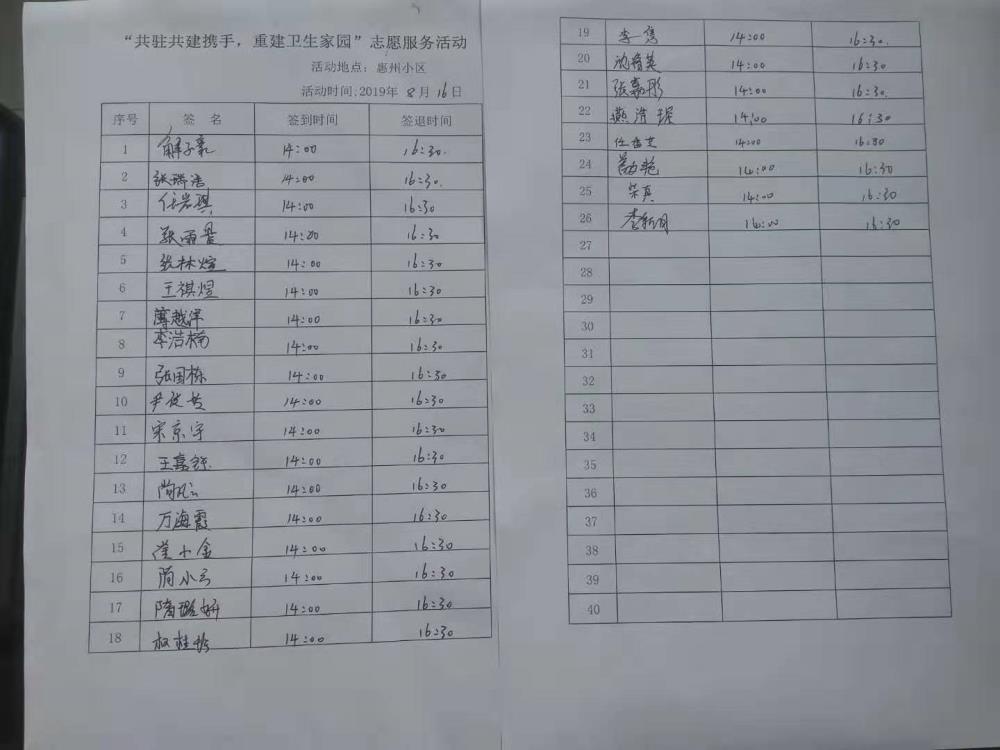 “共驻共建携手，重建卫生家园”志愿服务活动
活动地点：惠州小区
活动时间:2019年 8月16日
序号 签 名 签到时间 签退时间
1 解子豪 14:00 16:30.
2 张瑞浩 14:00 16:30.
3 任岩琪 14:00 16:30
4 张雨晨 14:00 16:30
5 张林煊 14:00 16:30
6 王祺煜 14:00 16:30
7 薄越洋 14:00 16:30
8 李浩楠 14:00 16:30
9 张国栋 14:00 16:30
10 14:00 16:30
11 宋京宇 14:00 16:30
12 王嘉钰 14:00 16:30
13 14:00 16:30
14 万海霞 14:00 16:30
15 崔小金 14:00 16:30
16 蔺小云 14:00 16:30
17 隋璐妍 14:00 16:30
18 权桂珍 14:00 16:30
19 李隽 14:00 16:30.
20 沈精英 14:00 16:30
21 张嘉彤 14:00 16:30.
22 14:00 16:30
23 14:00 16:30
24 14:00 16:30
25 荣真 14:00 16:30
26 李新明 14:00 16:30
27
28
29
30
31
32
33
34
35
36
37
38
39
40